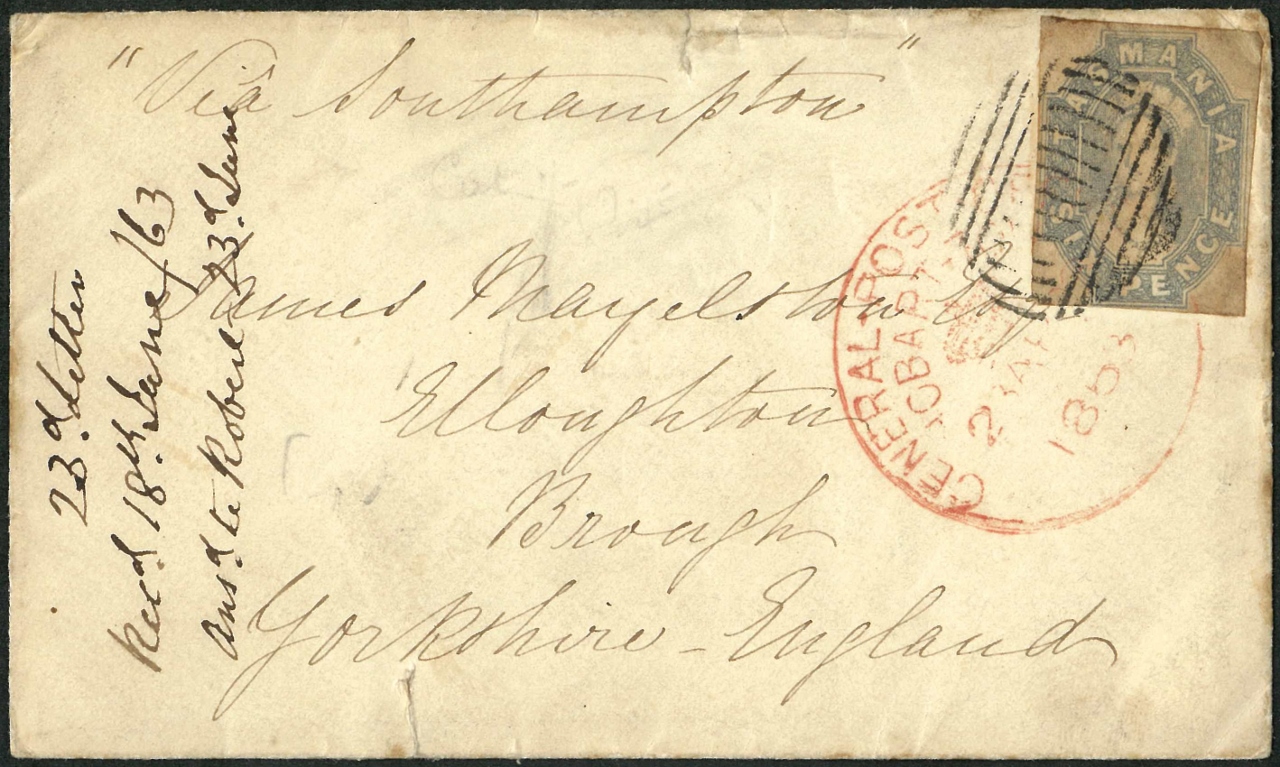 "Via Southampton"
James Mayelston Esq
Elloughton
Brough
Yorkshire - England
23d. Letter
Recd. 18th June/63
Ansd. to Robert 23d. June
TASMANIA
SIX PENCE
GENERAL POST
HOBART
2
1853